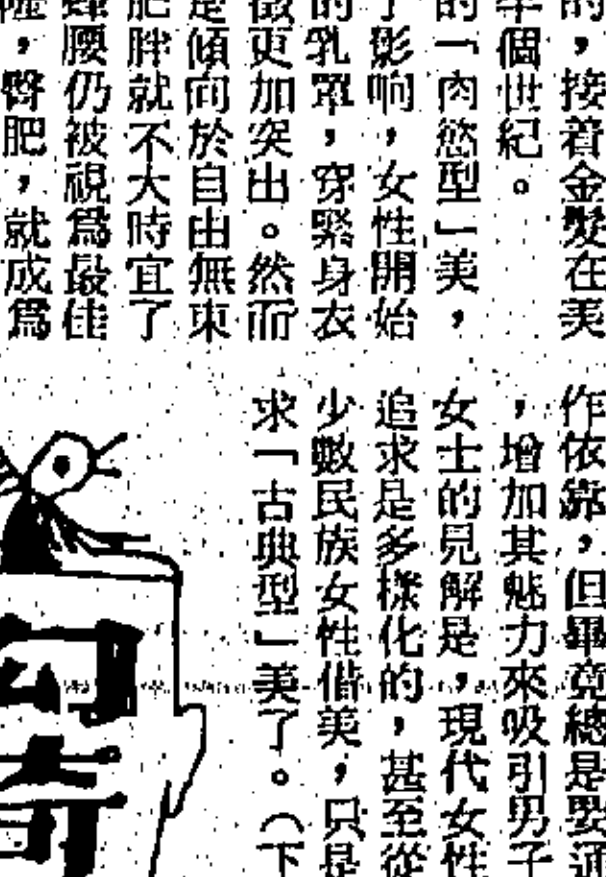 的，接着金髮在美
半個世紀。
的「肉慾型」美，
了影响，女性開始
的乳罩，穿緊身衣
徵更加突出。然而
是傾向於自由無束
肥胖就不大時宜了
蜂腰仍被視爲最佳
隆，臀肥，就成爲
作依靠，但畢竟總是要通
，增加其魅力來吸引男子
女士的見解是，現代女性
追求是多樣化的，甚至從
少數民族女性借美，只是
求「古典型」美了。（下